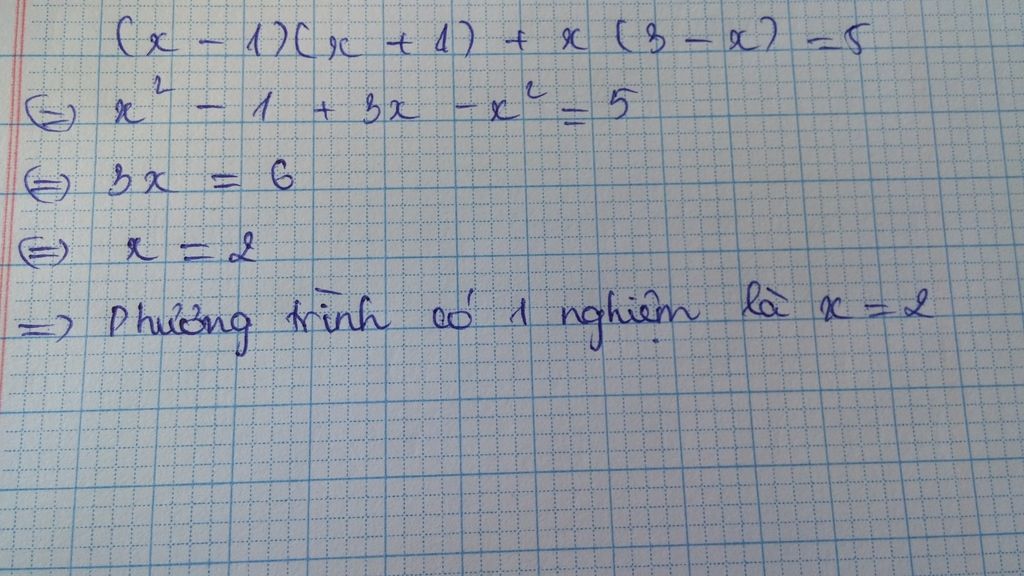 (x - 1)(x + 1) + x (3 - x) = 5
(=) x² - 1 + 3x - x² = 5
(=) 3x = 6
(=) x = 2
=> Phương trình có 1 nghiệm là x = 2